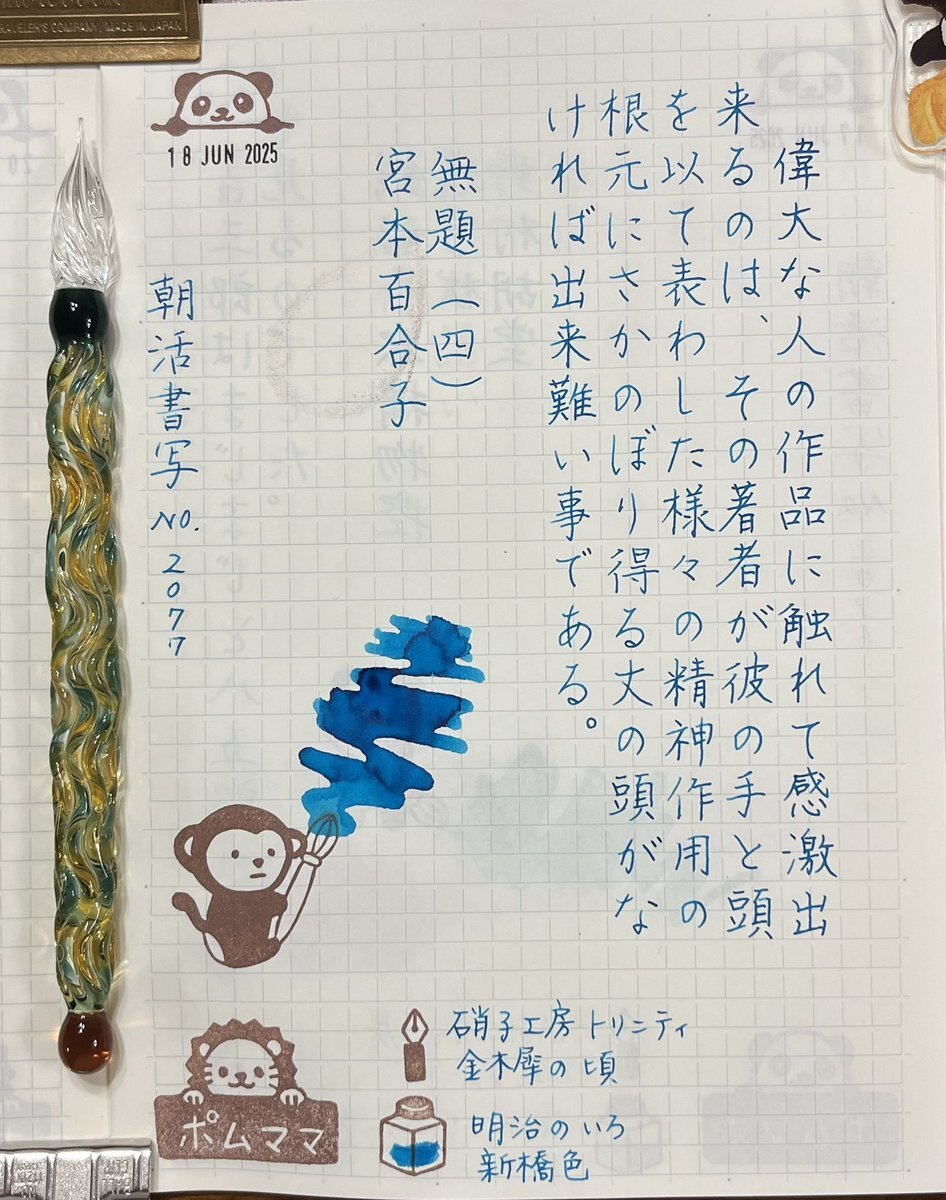 TRAVELER'S COMPANY, MADE IN JAPAN
18 JUN 2025
偉大な人の作品に触れて感激出
来るのは、その著者が彼の手と頭
を以て表わした様々の精神作用の
根元にさかのぼり得る丈の頭がな
ければ出来難い事である。
無題(四)
宮本百合子
朝活書写 NO.2077
硝子工房トリニティ
金木犀の頃
明治のいろ
新橋色
ポムママ